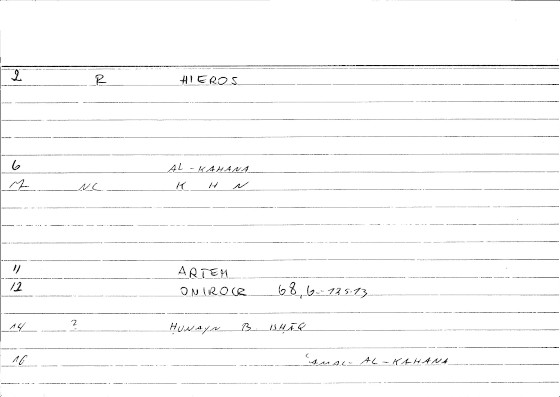 2 R HIEROS
6 AL-KAHANA
12 NC K H N
11 ARTEM
12 ONIROCR 68,6-125.13
14 ? HUNAYN B ISHĀQ
16 ʿAMAL AL-KAHANA